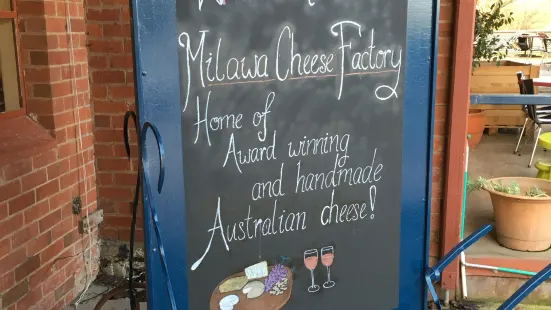 Milawa Cheese Factory
Home of
Award winning
and handmade
Australian cheese!